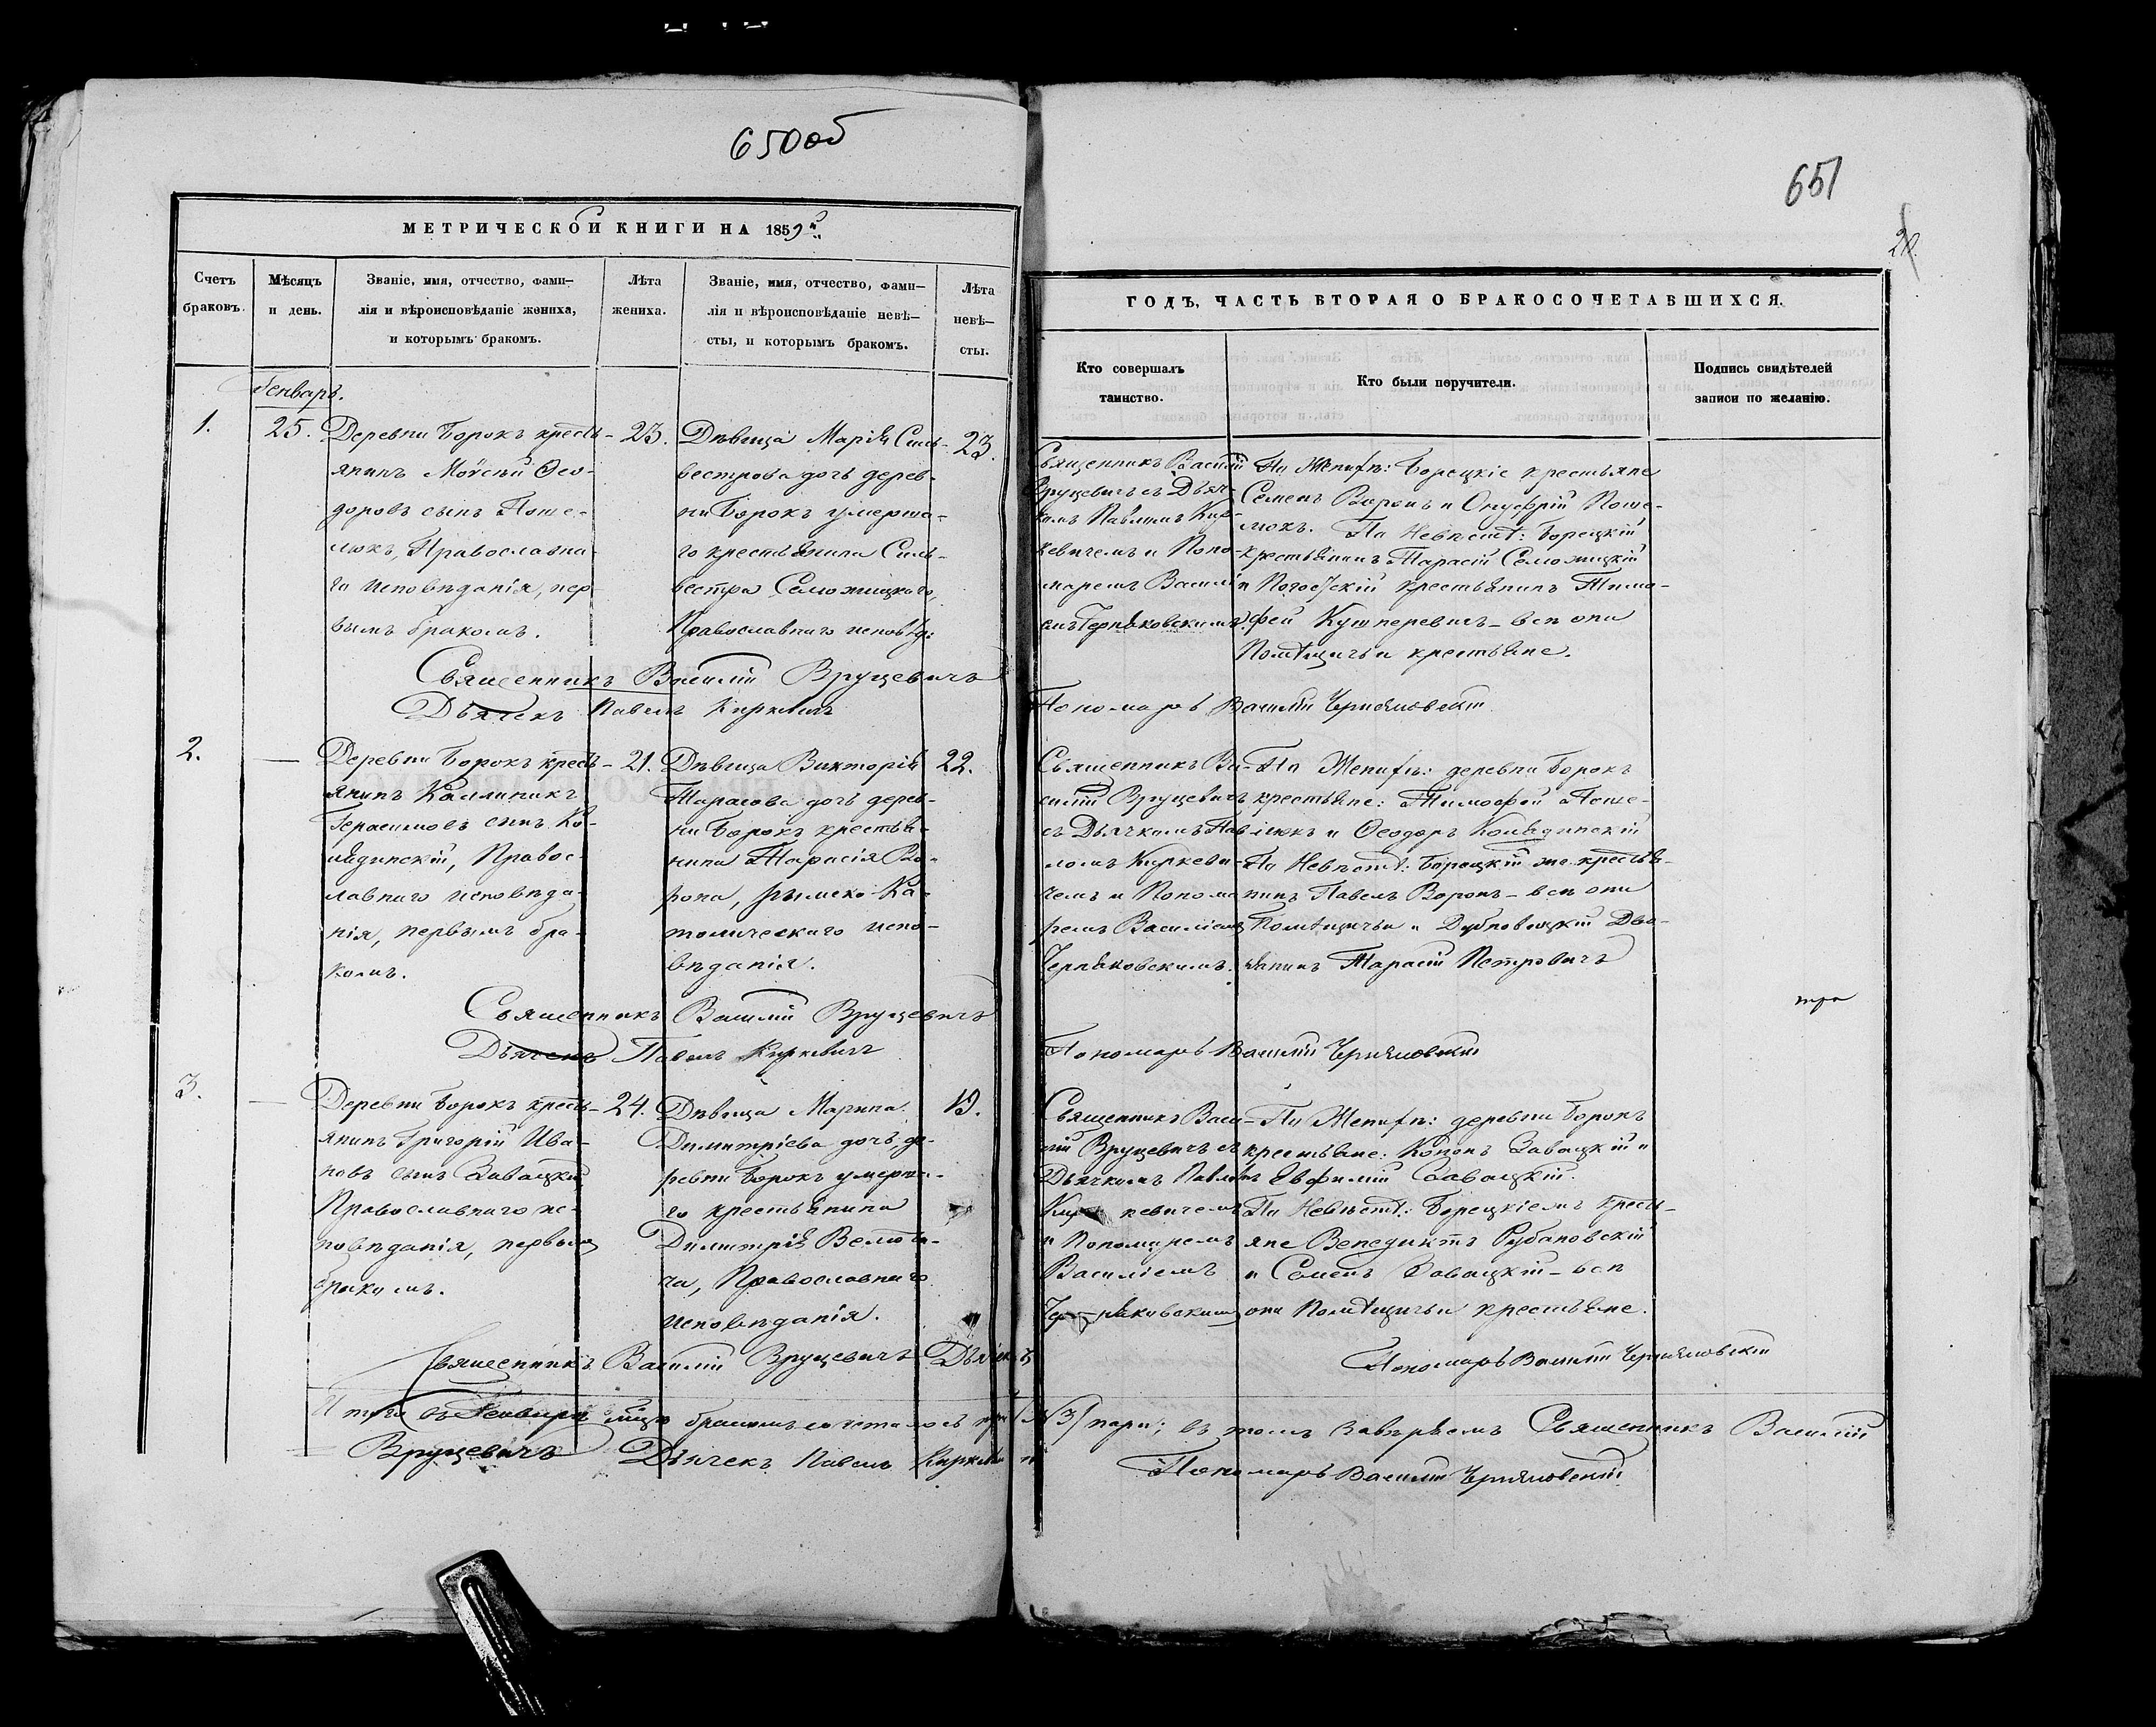 650об
МЕТРИЧЕСКОЙ КНИГИ НА 1859й
Счетъ
браковъ.
Мѣсяцъ
и день.
Званіе, имя, отчество, фами-
лія и вѣроисповѣданіе жениха,
и которымъ бракомъ.
Лѣта
жениха.
Званіе, имя, отчество, фами-
лія и вѣроисповѣданіе невѣ-
сты, и которымъ бракомъ.
Лѣта
невѣ-
сты.
Генварь.
1.
25.
Деревни Борокъ кресть-
янинъ Моѵсей Ѳео-
доровъ сынъ Поше-
люкъ, Православна-
го исповѣданія, пер-
вымъ бракомъ.
23.
Дѣвица Марія Силь-
вестрова дочь дерев-
ни Борокъ умерша-
го крестьянина Силь-
вестра Селюжицкаго,
Православнаго исповѣд:
23.
Священникъ Василій Вруцевичъ
Дьячекъ Павелъ Киркевичъ
2.
—
Деревни Борокъ кресть-
янинъ Каллиникъ
Герасимовъ сынъ Ко-
лядинскій, Правос-
лавнаго исповѣда-
нія, первымъ бра-
комъ.
21.
Дѣвица Викторія
Тарасова дочь дерев-
ни Борокъ крестья-
нина Тарасія Во-
рона, Римско-Ка-
толическаго испо-
вѣданія.
22.
Священникъ Василій Вруцевичъ
Дьячекъ Павелъ Киркевичъ
3.
—
Деревни Борокъ кресть-
янинъ Григорій Ива-
новъ сынъ Завацкій,
Православнаго ис-
повѣданія, первымъ
бракомъ.
24.
Дѣвица Марина
Димитріева дочь де-
ревни Борокъ умерша-
го крестьянина
Димитрія
Православнаго
исповѣданія.
19.
Священникъ Василій Вруцевичъ Дьячекъ
Итого въ Генварѣ мцѣ бракомъ сочеталось три
Вруцевичъ Дьячекъ Павелъ Киркевичъ
651
ГОДЪ, ЧАСТЬ ВТОРАЯ О БРАКОСОЧЕТАВШИХСЯ.
Кто совершалъ
таинство.
Кто были поручители.
Подпись свидѣтелей
записи по желанію.
Священникъ Василій
Вруцевичъ съ Дьяч-
комъ Павломъ Кир-
кевичемъ и Поно-
маремъ Василі-
емъ Черняковскимъ.
По Женихѣ: Борецкіе крестьяне
Семенъ Воронъ и Онуфрій Поше-
люкъ. По Невѣстѣ: Борецкій
крестьянинъ Тарасій Селюжицкій
и Погостскій крестьянинъ Тимо-
фей Кушнеревичъ - всѣ они
Помѣщичьи крестьяне.
Пономарь Василій Черняковскій
Священникъ Ва-
силій Вруцевичъ
съ Дьячкомъ Пав-
ломъ Киркеви-
чемъ и Понома-
ремъ Василіемъ
Черняковскимъ.
По Женихѣ: деревни Борокъ
крестьяне: Тимоѳей Поше-
люкъ и Ѳеодоръ Колядинскій
По Невѣстѣ: Борецкій же крестья-
нинъ Павелъ Воронъ - всѣ они
Помѣщичьи и Дубновицкій Дво-
рянинъ Тарасій Петровичъ
Пономарь Василій Черняковскій
Священникъ Васи-
лій Вруцевичъ съ
Дьячкомъ Павломъ
Киркевичемъ
и Пономаремъ
Василіемъ
Черняковскимъ
По Женихѣ: деревни Борокъ
крестьяне: Кононъ Завацкій и
Евфимій Савацкій.
По Невѣстѣ: Борецкіемъ кресть-
яне Венедиктъ Рубановскій
и Семенъ Завацкій - всѣ
они Помѣщичьи крестьяне.
Пономарь Василій Черняковскій
№3/ пары; въ томъ завѣряемъ Священникъ Василій
Пономарь Василій Черняковскій